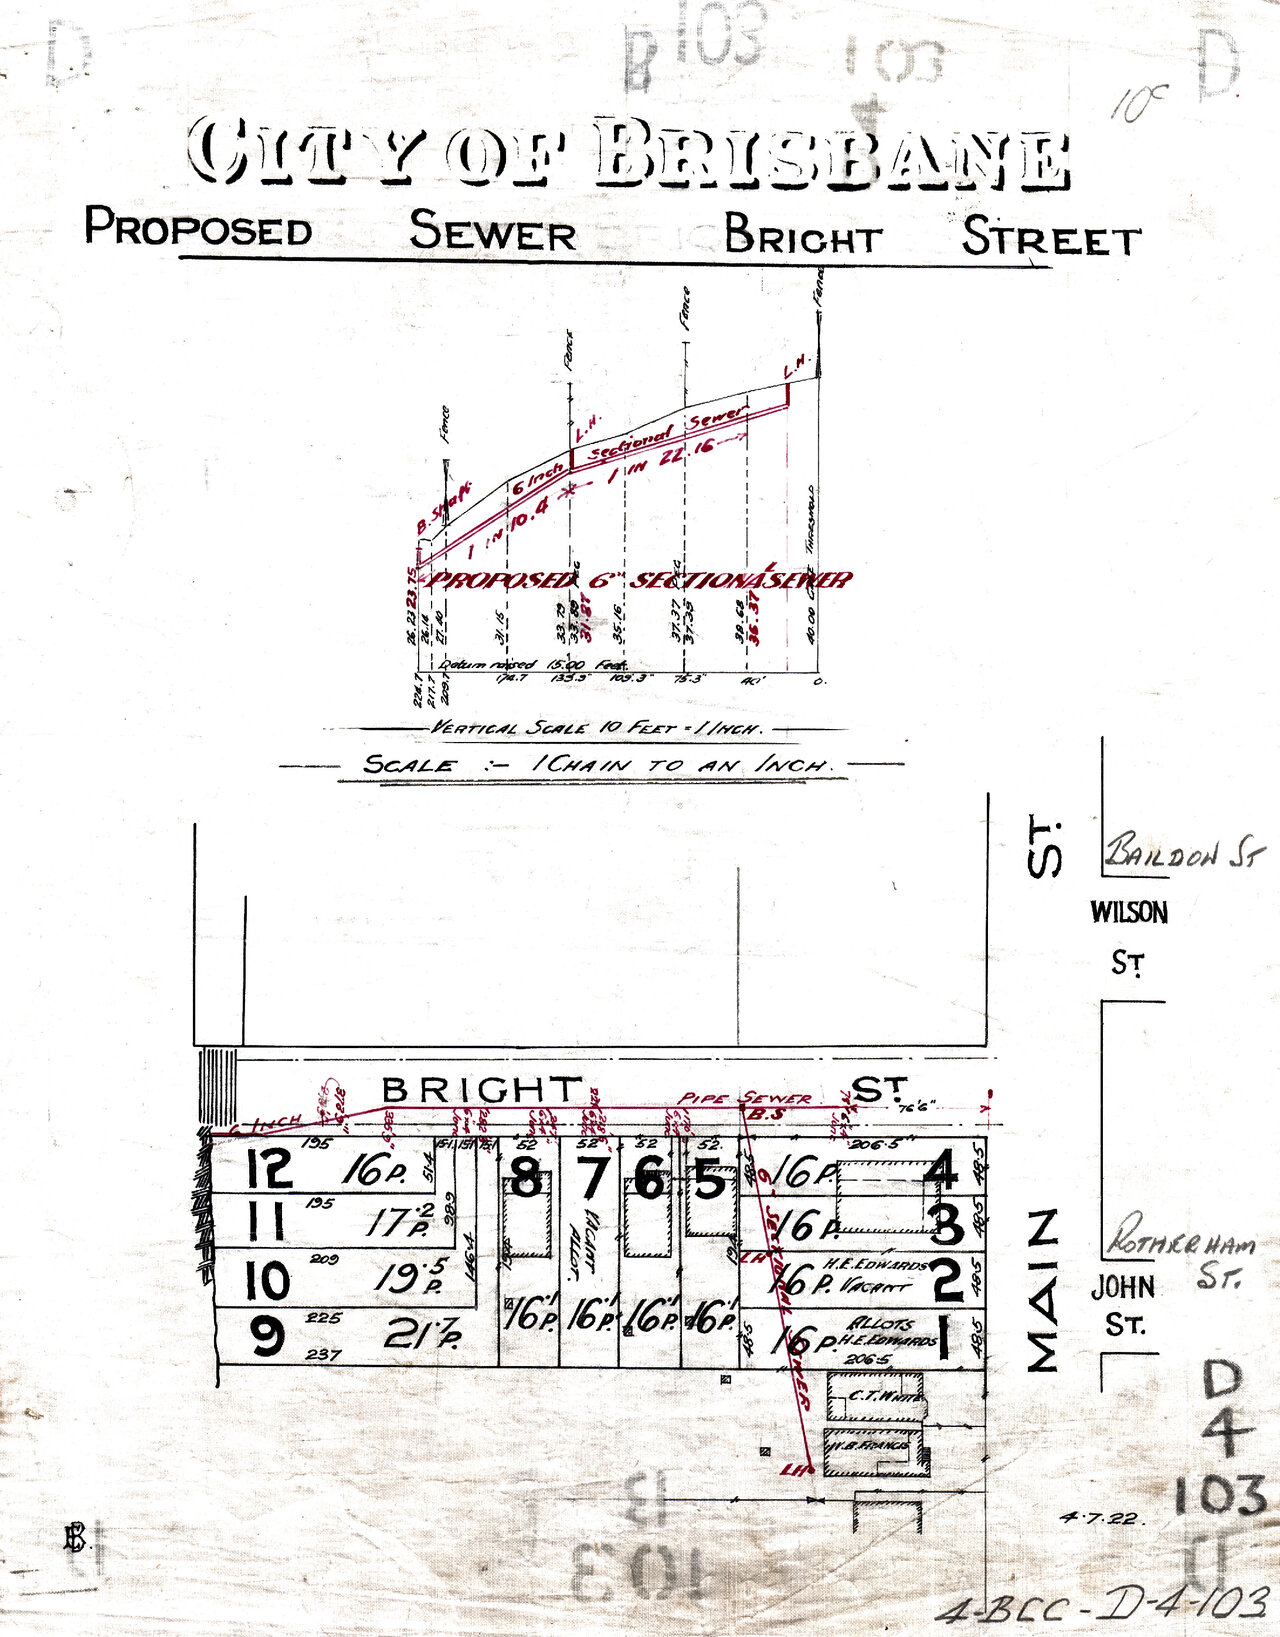 D
B
103
103
4
D
10c
CITY OF BRISBANE
PROPOSED SEWER BRIGHT STREET
Fence
Fence
Fence
Fence
L.H.
L.H.
B. Shaft
6 Inch Sectional Sewer
1 IN 10.4
1 IN 22.16
PROPOSED 6" SECTIONAL SEWER
26.23 23.75
26.16
27.40
31.15
33.79
31.87
35.16
37.37 PEG
37.39
38.68
36.37
40.00 GATE THRESHOLD
Datum raised 15.00 Feet.
226.7
217.7
209.7
174.7
139.9"
109.3"
75.3"
40'
0.
VERTICAL SCALE 10 FEET = 1 INCH.
SCALE :- 1 CHAIN TO AN INCH.
ST.
BAILDON ST
WILSON
ST.
BRIGHT ST.
6 INCH
PIPE SEWER
B.S
76'6"
195
151
151
151
52
52
52
52
206.5"
12
16 P.
51.4
8
7
6
5
48.5
16 P.
4
48.5
195
11
17.2 P.
98.9
16 P.
3
48.5
VACANT
ALLOT.
LH
209
10
19.5 P.
146.4
H.E. EDWARDS
16 P. VACANT
2
48.5
6" SECTIONAL SEWER
225
9
21.7 P.
237
16.1 P.
16.1 P.
16.1 P.
16.1 P.
48.5
ALLOTS
16 P. H.E. EDWARDS
1
48.5
206.5
MAIN
ROTHERHAM
ST.
JOHN
ST.
C.T. WHITE
W.B. FRANCIS
LH
D
4
103
4.7.22.
B
103
D
4-BCC-D-4-103